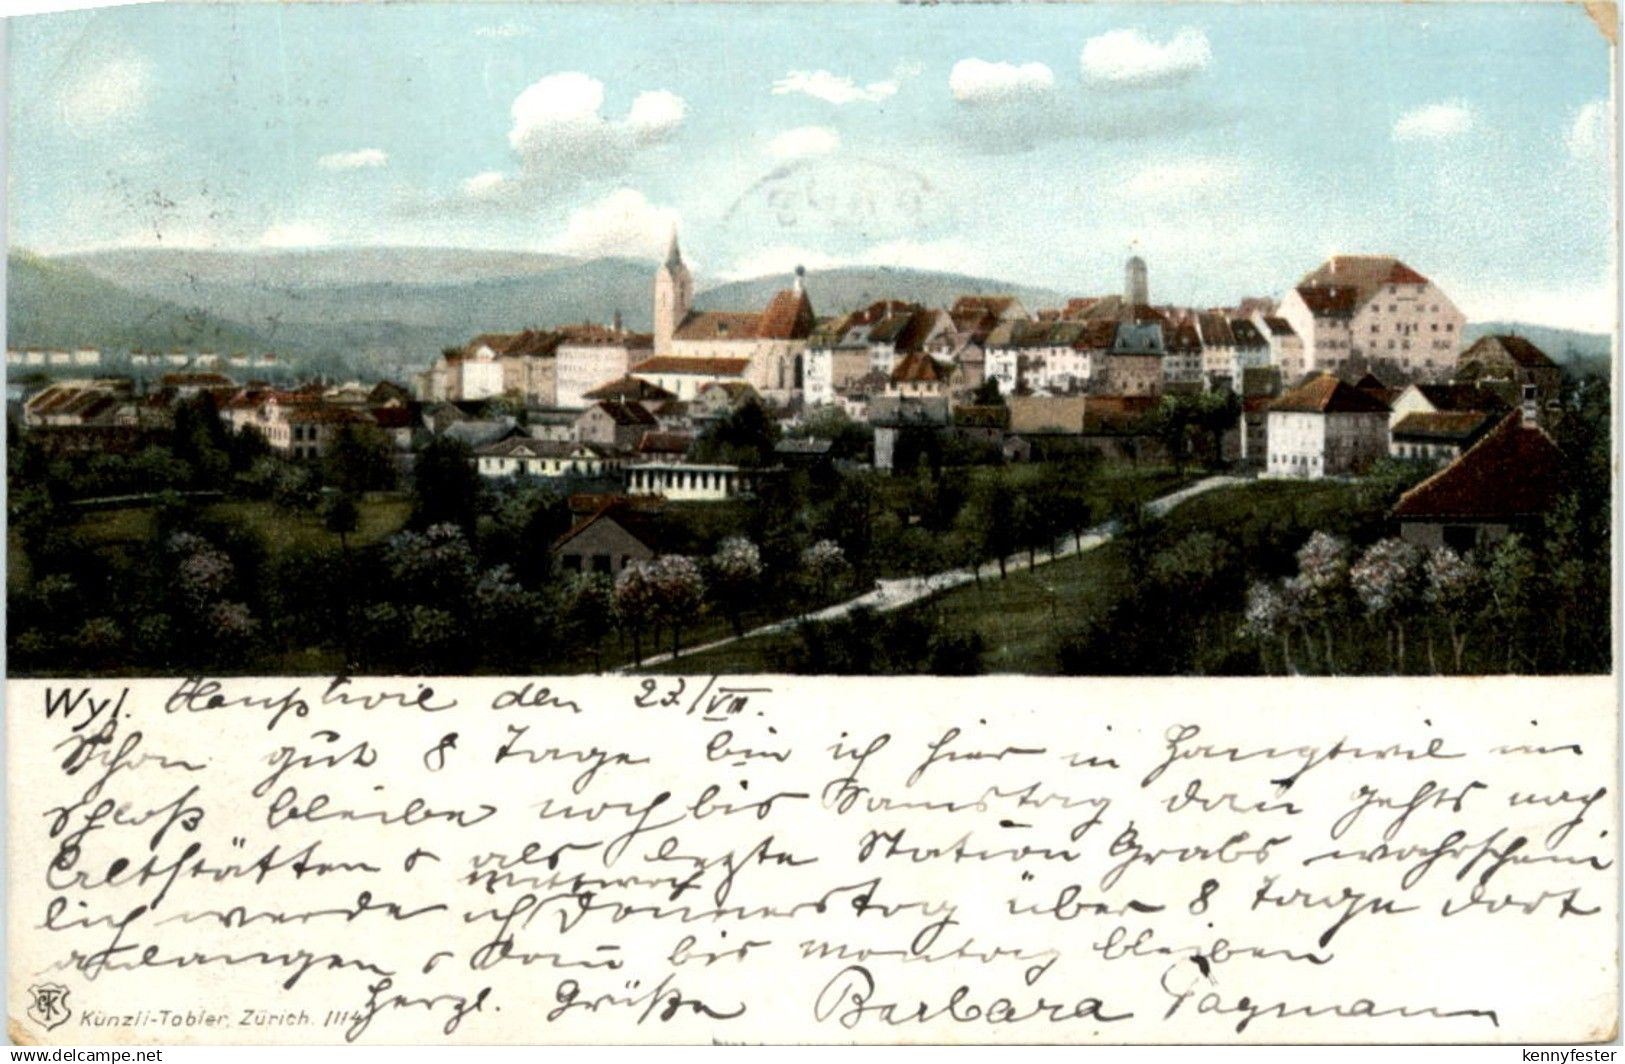 Wyl. Hauptwil den 23./VII.
Schon gut 8 Tage bin ich hier in Hauptwil im
Schloß bleibe noch bis Samstag, dan̄ gehts nach
Altstätten & als letzte Station Grabs wahrschein
Mittwoch
lich werde ich Donnerstag über 8 Tage dort
anlangen & dan̄ bis Montag bleiben
Herzl. Grüße Barbara
Künzli-Tobler, Zürich. 1114
kennyfester
www.delcampe.net